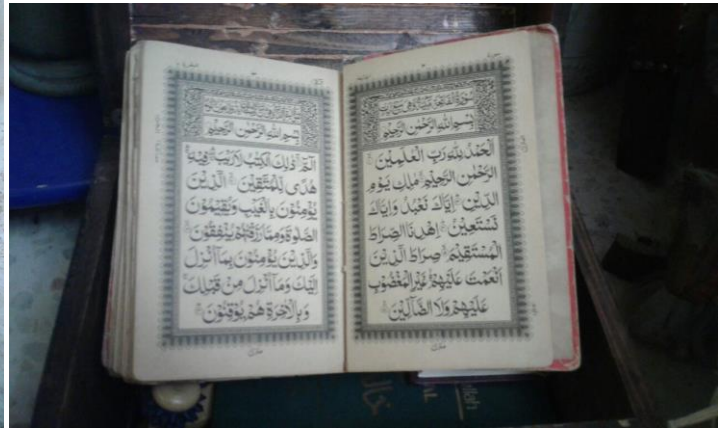 بِسْمِ اللهِ الرَّحْمٰنِ الرَّحِيْمِ
اَلْحَمْدُ لِلّٰهِ رَبِّ الْعٰلَمِيْنَ
الرَّحْمٰنِ الرَّحِيْمِ مٰلِكِ يَوْمِ
الدِّيْنِ اِيَّاكَ نَعْبُدُ وَاِيَّاكَ
نَسْتَعِيْنُ اِهْدِنَا الصِّرَاطَ
الْمُسْتَقِيْمَ صِرَاطَ الَّذِيْنَ
اَنْعَمْتَ عَلَيْهِمْ غَيْرِ الْمَغْضُوْبِ
عَلَيْهِمْ وَلَا الضَّآلِّيْنَ
بِسْمِ اللهِ الرَّحْمٰنِ الرَّحِيْمِ
الٓمّٓ ذٰلِكَ الْكِتٰبُ لَا رَيْبَ فِيْهِ
هُدًى لِّلْمُتَّقِيْنَ الَّذِيْنَ
يُؤْمِنُوْنَ بِالْغَيْبِ وَيُقِيْمُوْنَ
الصَّلٰوةَ وَمِمَّا رَزَقْنٰهُمْ يُنْفِقُوْنَ
وَالَّذِيْنَ يُؤْمِنُوْنَ بِمَآ اُنْزِلَ
اِلَيْكَ وَمَآ اُنْزِلَ مِنْ قَبْلِكَ
وَبِالْاٰخِرَةِ هُمْ يُوْقِنُوْنَ